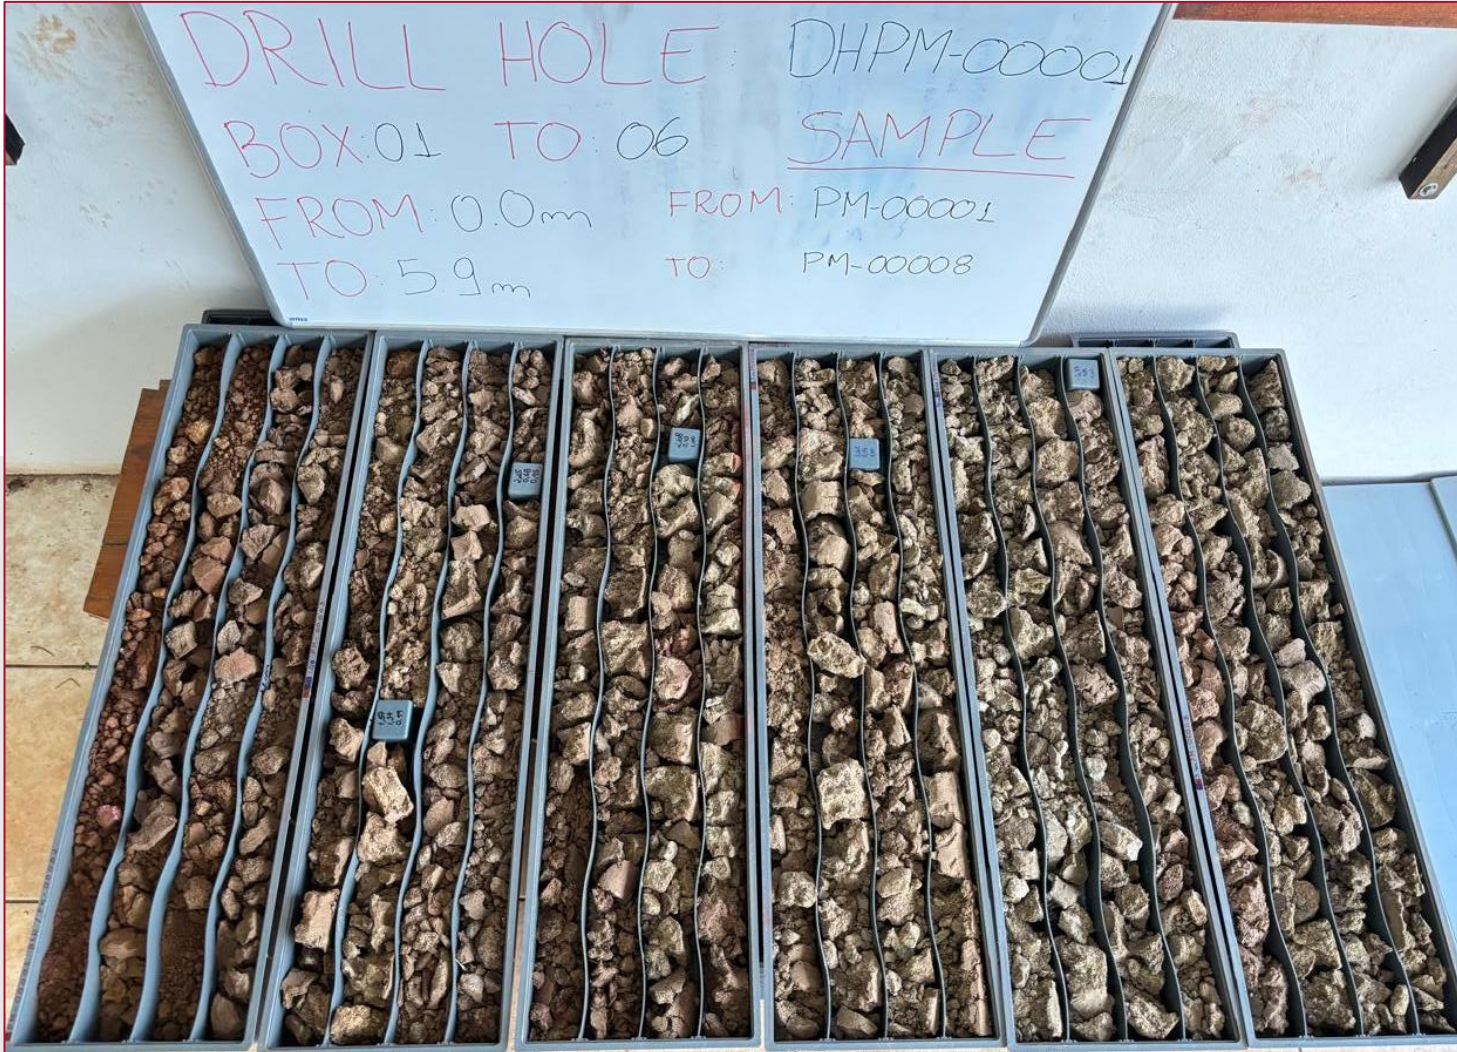 DRILL HOLE: DHPM-00001
BOX:01 TO:06 SAMPLE
FROM:0.0m FROM: PM-00001
TO:5.9m TO: PM-00008